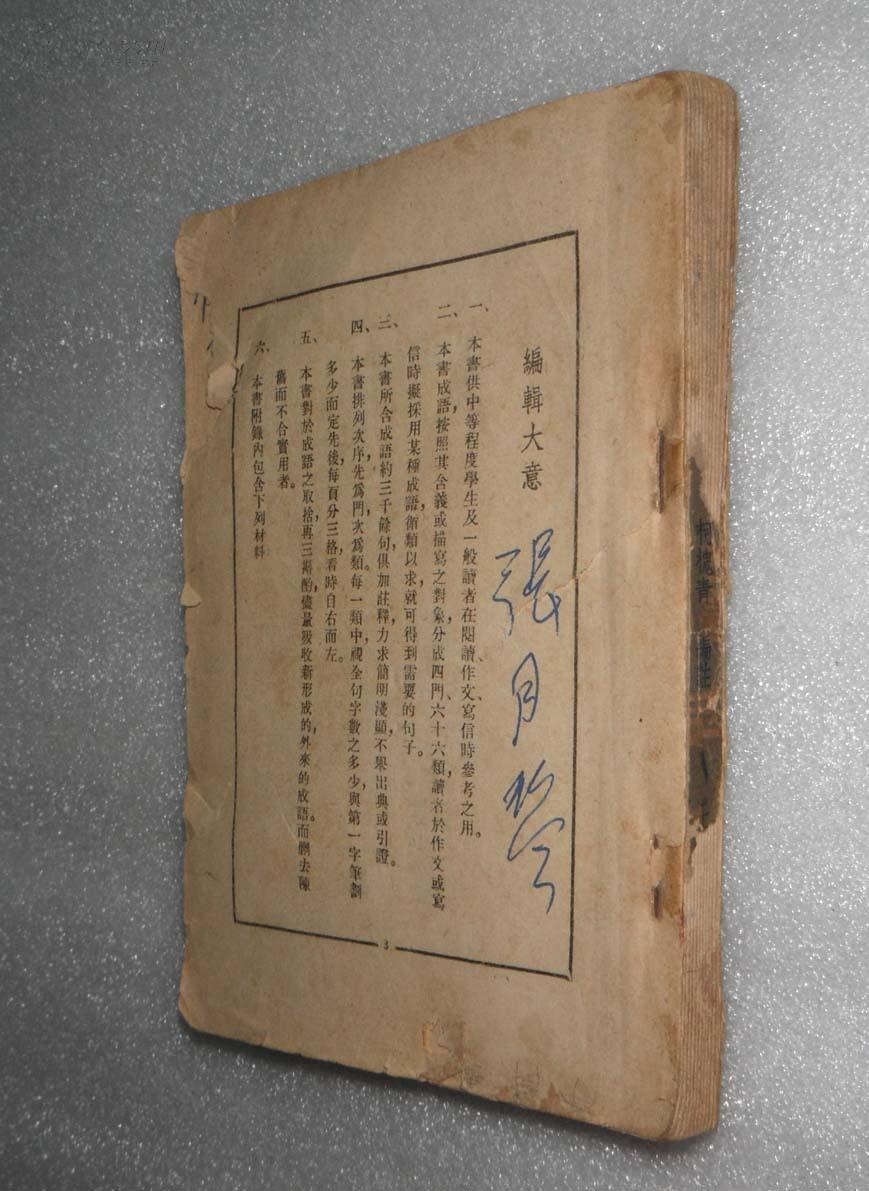 編輯大意
一、本書供中等程度學生及一般讀者在閱讀、作文、寫信時參考之用。
二、本書成語，按照其含義或描寫之對象，分成四門、六十六類，讀者於作文或寫
信時擬採用某種成語，循類以求，就可得到需要的句子。
三、本書所含成語約三千餘句，俱加註釋，力求簡明淺顯，不舉出典或引證。
四、本書排列次序，先爲門，次爲類。每一類中，視全句字數之多少，與第一字筆劃
多少而定先後，每頁分三格，看時自右而左。
五、本書對於成語之取捨，再三斟酌，儘量吸收新形成的，外來的成語。而刪去陳
舊而不合實用者。
六、本書附錄內包含下列材料
3
張月